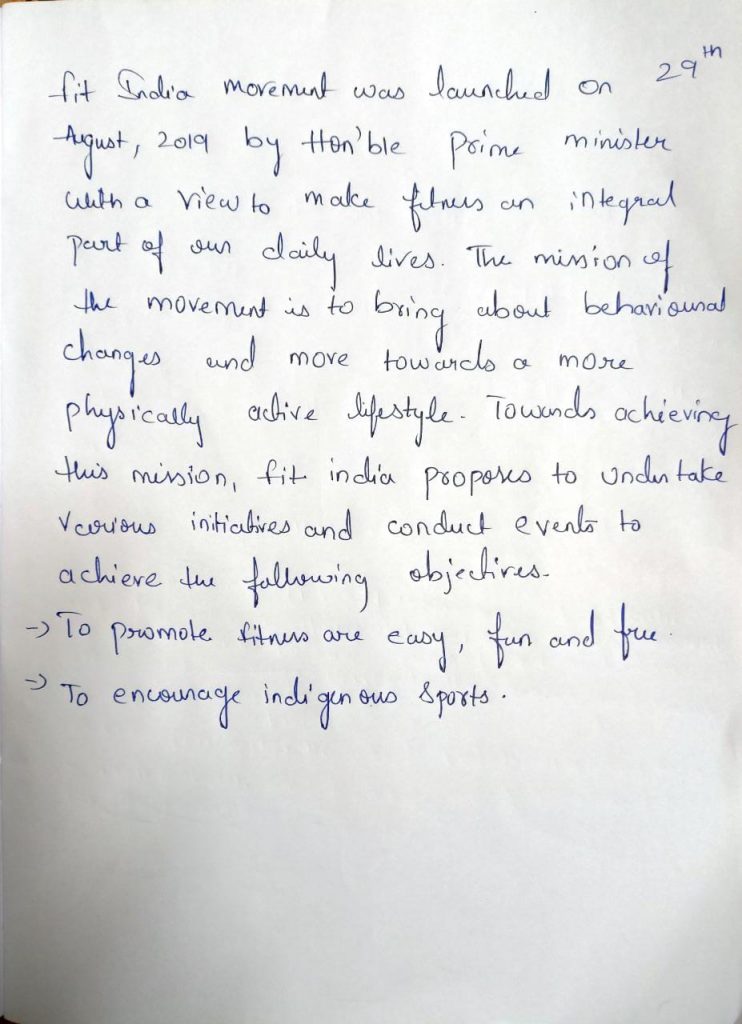 fit India movement was launched on 29th
August, 2019 by Hon'ble Prime minister
with a view to make fitness an integral
part of our daily lives. The mission of
the movement is to bring about behavioural
changes and move towards a more
physically active lifestyle. Towards achieving
this mission, fit india proposes to undertake
various initiatives and conduct events to
achieve the following objectives.
-> To promote fitness are easy, fun and free.
-> To encourage indigenous sports.